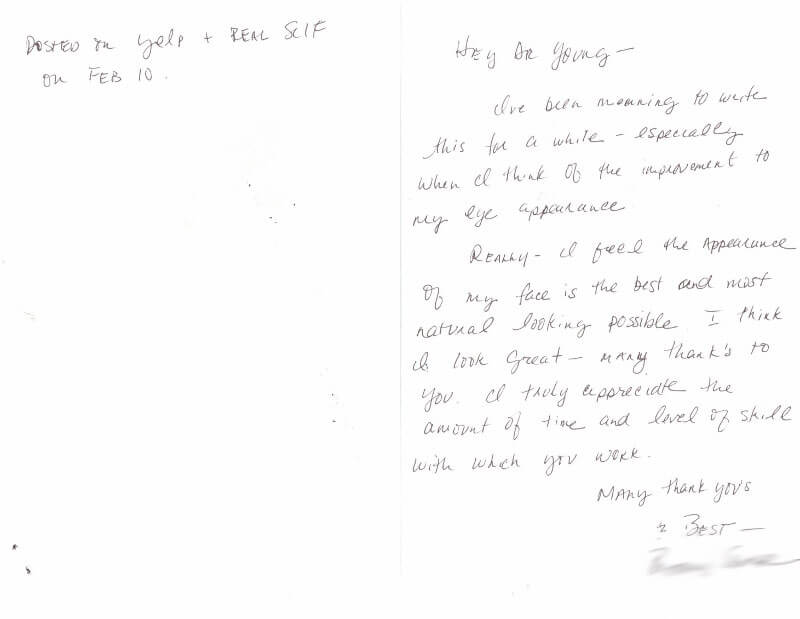 POSTED on yelp + REAL SELF
on FEB 10.
HEY DR YOUNG —
I've been meaning to write
this for a while - especially
when I think of the improvement to
my eye appearance
REALLY - I feel the Appearance
of my face is the best and most
natural looking possible I think
I look Great - MANY thank's to
you. I truly appreciate the
amount of time and level of skill
with which you work.
MANY thank you's
& BEST —